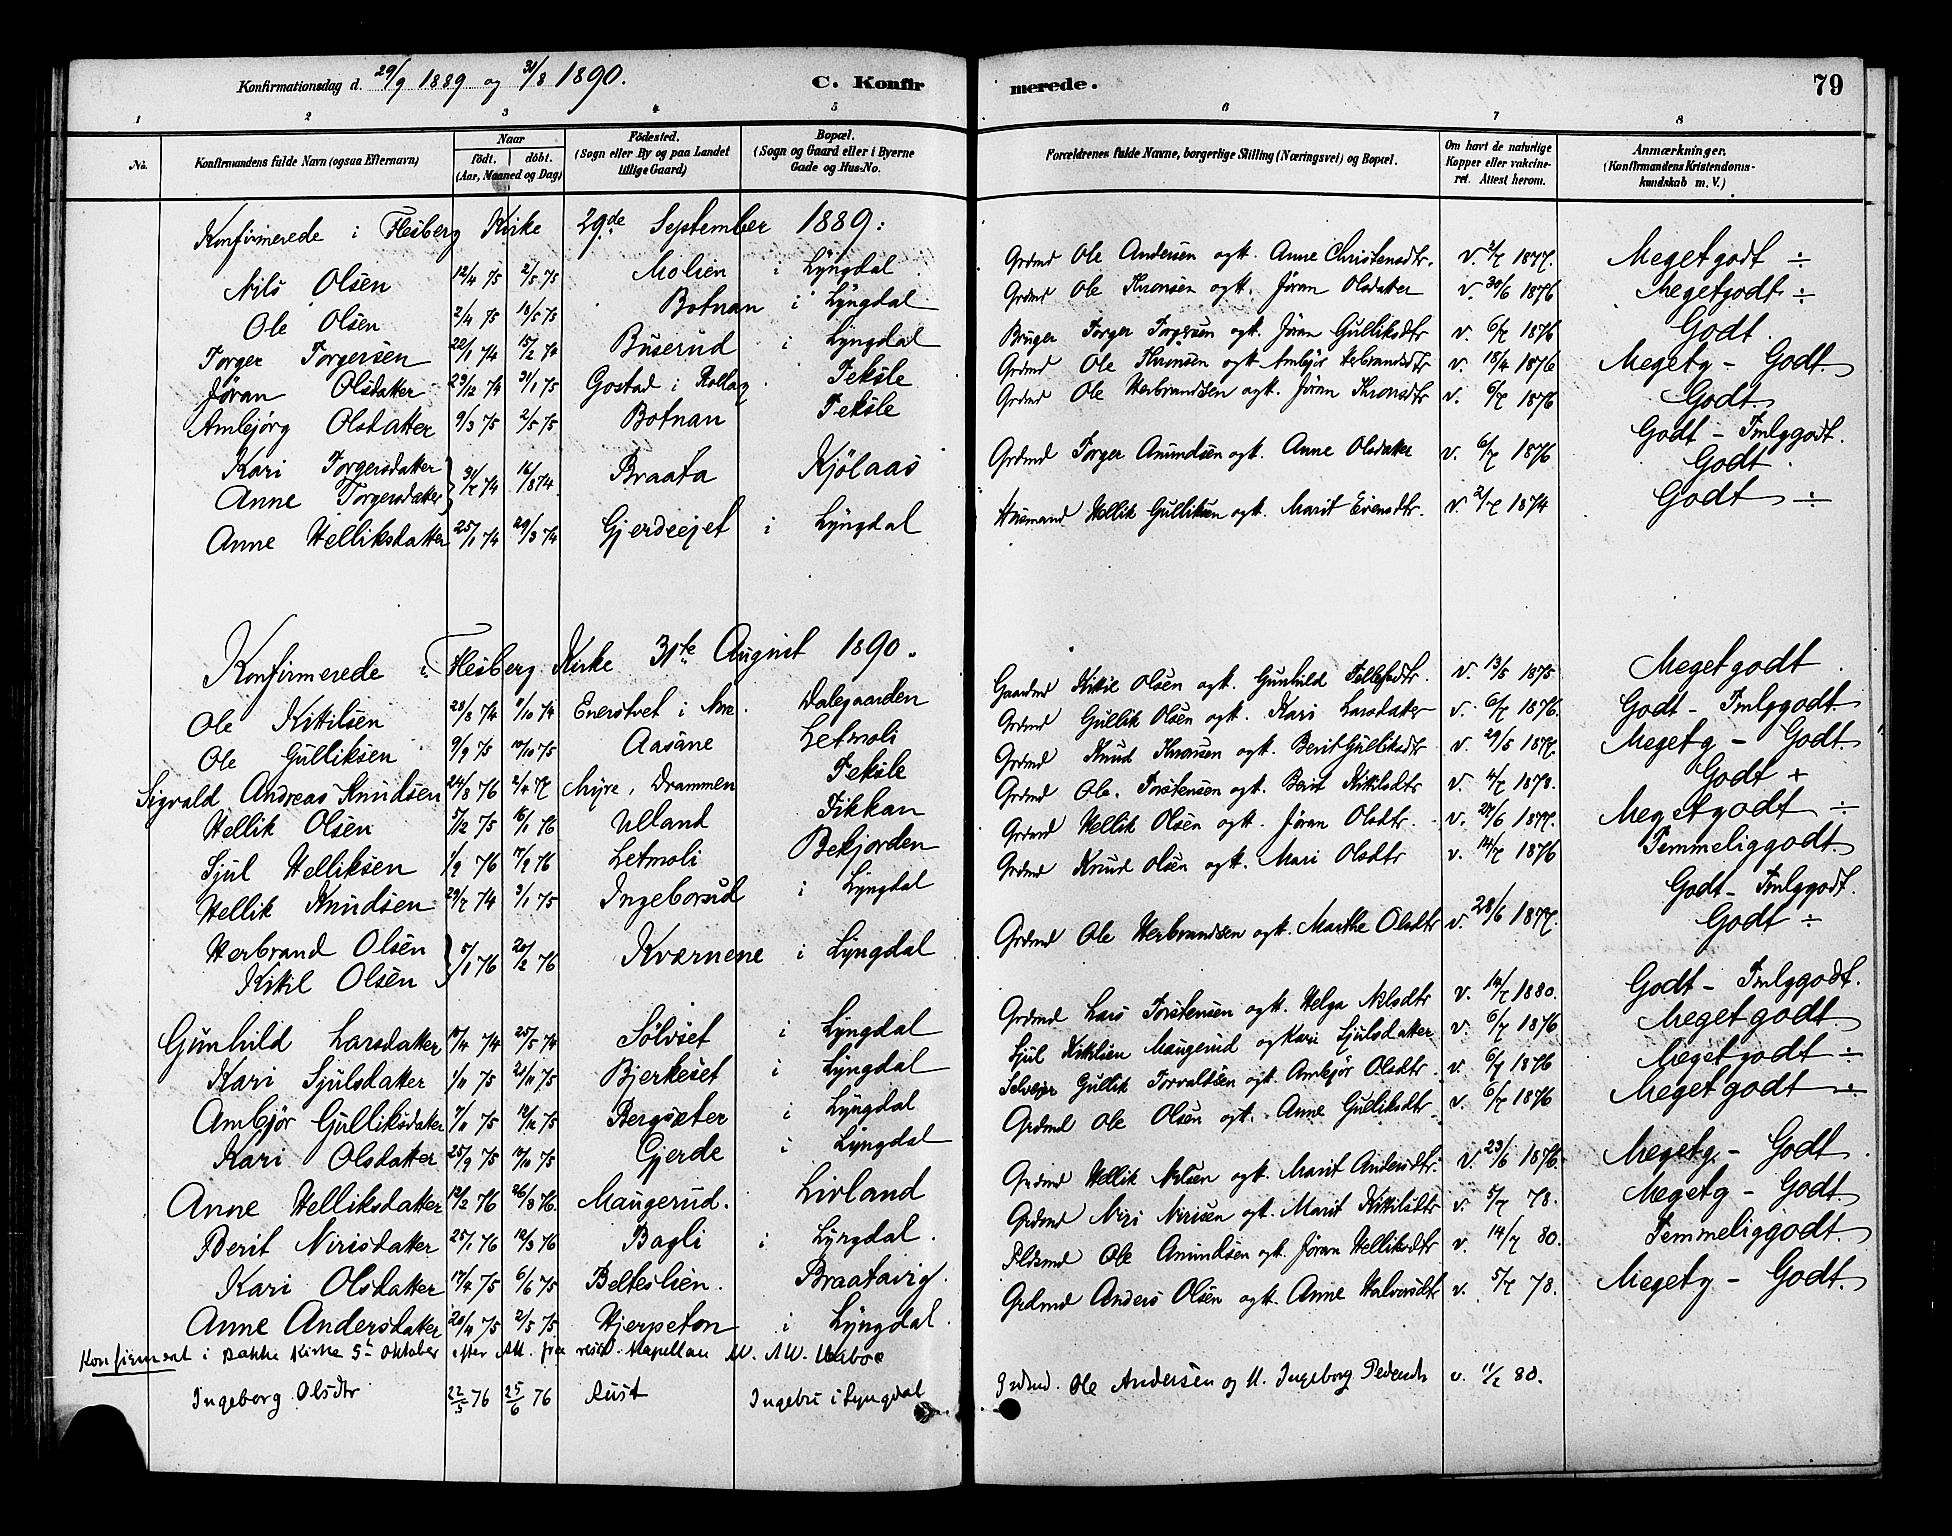 Konfirmationsdag d. 29/9 1889 og 31/8 1890. C. Konfirmerede. 79
1 2 3 4 5 6 7 8
No. Konfirmandens fulde Navn (ogsaa Efternavn) Naar født. døbt. (Aar, Maaned og Dag) Fødested. (Sogn eller By og paa Landet tillige Gaard) Bopæl. (Sogn og Gaard eller i Byerne Gade og Hus-No. Forældrenes fulde Navne, borgerlige Stilling (Næringsvei) og Bopæl. Om havt de naturlige Kopper eller vakcineret. Attest herom. Anmærkninger. (Konfirmandens Kristendomskundskab m. V.)
Konfirmerede i Flesberg Kirke 29de September 1889:
Nils Olsen 12/4 75 2/5 75 Molien i Lyngdal Grdmd Ole Andersen ogH. Anne Christensdtr. v. 2/7 1877. Megetgodt ÷
Ole Olsen 2/4 75 18/5 75 Botnan i Lyngdal Grdmd Ole Thronsen ogH. Jøran Olsdatter v. 30/6 1876 Megetgodt ÷
Torger Torgersen 22/1 74 15/2 74 Buserud i Lyngdal Bruger Torger Torgersen ogH. Jøran Gulliksdtr v. 6/7 1876 Godt.
Jøran Olsdatter 29/12 74 31/1 75 Gostad i Rollag Teksle Grdmd Ole Thronsen ogH. Ambjør Herbrandsdtr v. 18/4 1876 Megetg - Godt.
Ambjørg Olsdatter 9/3 75 2/5 75 Botnan Teksle Grdmd Ole Herbrandsen ogH. Jøran Thronsdtr v. 6/7 1876 Godt.
Kari Torgersdatter } 31/7 74 16/8 74. Braata Kjölaas Grdmd Torger Amundsen ogH. Anne Olsdatter v. 6/7 1876 Godt - Tmlggodt.
Anne Torgersdatter } Godt.
Anne Helliksdatter 25/1 74 29/3 74 Gjerdeejet i Lyngdal Husmand Hellik Gulliksen ogH. Marit Evensdtr. v. 2/7 1874 Godt ÷
Konfirmerede i Flesberg Kirke 31te August 1890.
Ole Kittilsen 23/8 74 9/10 74 Enerstvet i Nore. Dalegaarden Gaardmd Kittil Olsen ogH. Gunhild Tollefsdtr. v. 13/5 1875 Megetgodt.
Ole Gulliksen 9/9 75 10/10 75 Aasane Letmoli Grdmd Gullik Olsen ogH. Kari Larsdatter v. 6/7 1876. Godt - Tmlggodt.
Sigvald Andreas Knudsen 24/8 76 2/4 77 Myre, Drammen Teksle Grdmd Knud Thronsen ogH. Berit Gulliksdtr v. 29/5 1877. Megetg - Godt.
Hellik Olsen 5/12 75 16/1 76 Ulland Tikkan Grdmd Ole Torstensen ogH. Berit Kittilsdtr v. 4/7 1878. Godt +
Sjul Helliksen 1/9 76 17/9 76 Letmoli Bekjorden Grdmd Hellik Olsen ogH. Jøran Olsdtr. v. 27/6 1877. Megetgodt ÷
Hellik Knudsen 29/7 74 3/1 75 Ingeborud i Lyngdal Grdmd Knud Olsen ogH. Mari Olsdtr v. 14/7 1876 Temmeliggodt.
Herbrand Olsen } 5/1 76 20/2 76 Kværnene i Lyngdal Grdmd Ole Herbrandsen ogH. Marthe Olsdtr v. 28/6 1877. Godt - Tmlggodt.
Kittil Olsen } Godt ÷
Gunhild Larsdatter 17/4 74 25/5 74 Sølvset i Lyngdal Grdmd Lars Torstensen ogH. Helga Nelsdtr v. 14/7 1880. Godt - Tmlggodt.
Kari Sjulsdatter 1/11 75 21/11 75 Bjerkeset i Lyngdal Sjul Kittilsen Maugerud og Kari Sjulsdatter v. 6/7 1876 Megetgodt.
Ambjør Gulliksdatter 7/11 75 12/12 75 Bergsæter i Lyngdal Selveier Gullik Torvaldsen ogH. Ambjør Olsdtr. v. 6/7 1876 Megetgodt ÷
Kari Olsdatter 25/9 75 17/10 75 Gjerde i Lyngdal Grdmd Ole Olsen ogH. Anne Gulliksdtr v. 6/7 1876 Megetgodt ÷
Anne Helliksdatter 12/2 76 26/3 76. Maugerud. Livland Grdmd Hellik Nilsen ogH. Marit Andersdtr. v. 23/6 1876. Megetg - Godt.
Berit Nirisdatter 25/1 76 12/3 76 Bagli i Lyngdal. Grdmd Niri Nirisen ogH. Marit Kittilsdtr v. 5/7 78. Megetg - Godt
Kari Olsdatter 17/4 75 6/6 75 Belteslien. Braatavig. Pldsmd Ole Amundsen ogH. Jøran Helliksdtr v. 14/7 80. Temmeliggodt.
Anne Andersdatter 20/4 75 2/5 75. Hjerpeton i Lyngdal. Grdmd Anders Olsen ogH. Anne Halvorsdtr v. 5/7 78. Megetg - Godt.
Konfirmeret i Bakke Kirke 5te Oktober efter Att. fra resid. Kapellan
Ingeborg Olsdtr 22/5 76 25/6 76 Rust Ingebri i Lyngdal Grdmd. Ole Andersen og H. Ingeborg Pedersdtr v. 11/7 80.